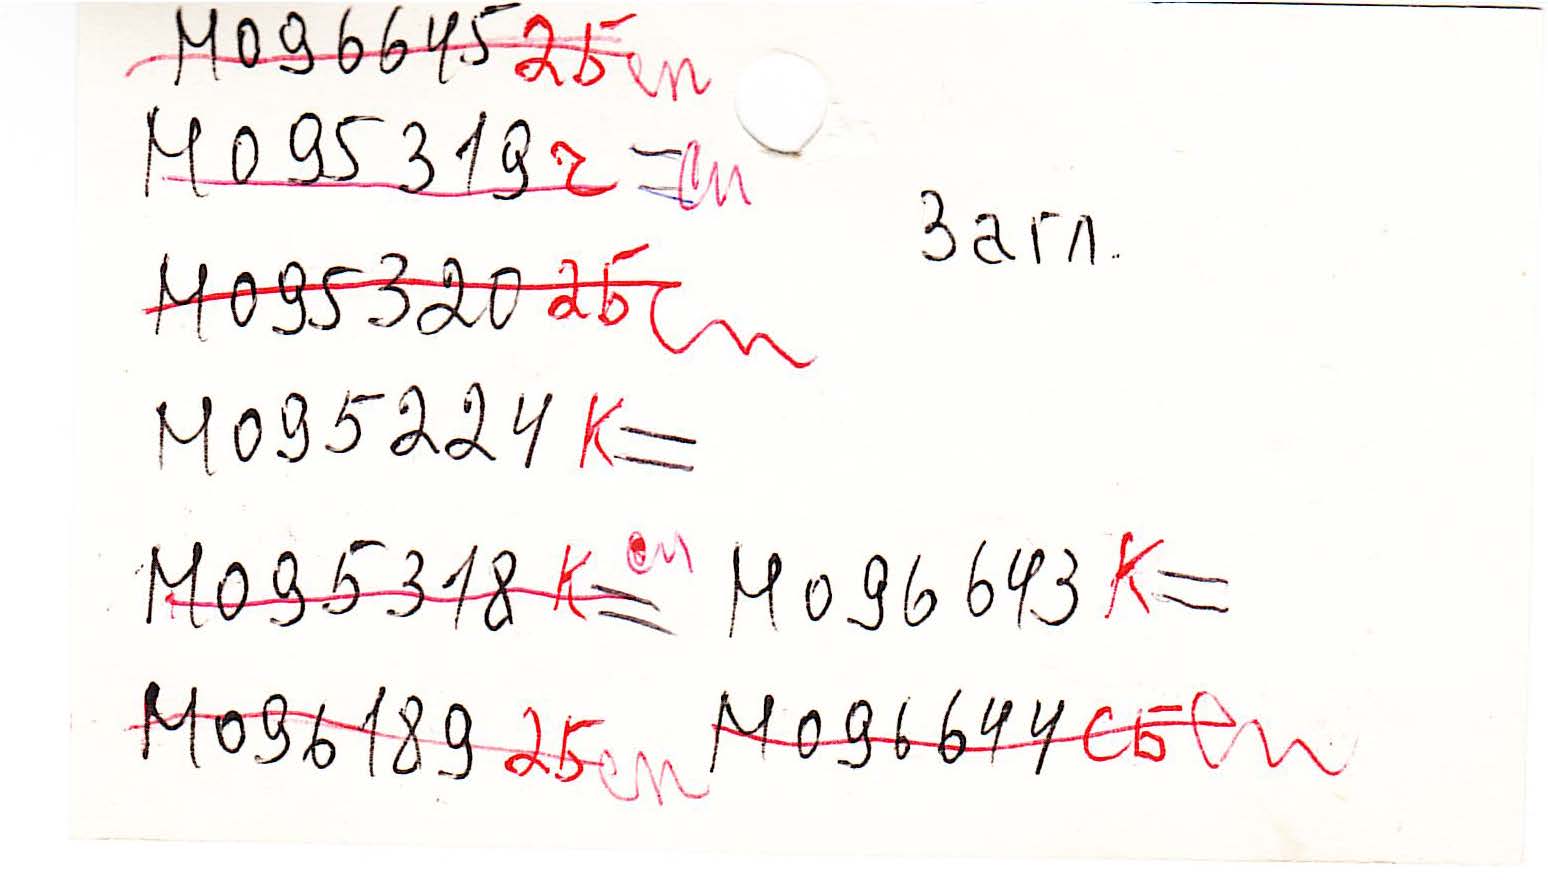 М096645 2Б сп
М095319 г = сп
Загл.
М095320 2Б сп
М095224 К=
М095318 К= сп М096643 К=
М096189 2Б сп М096644 СБ сп